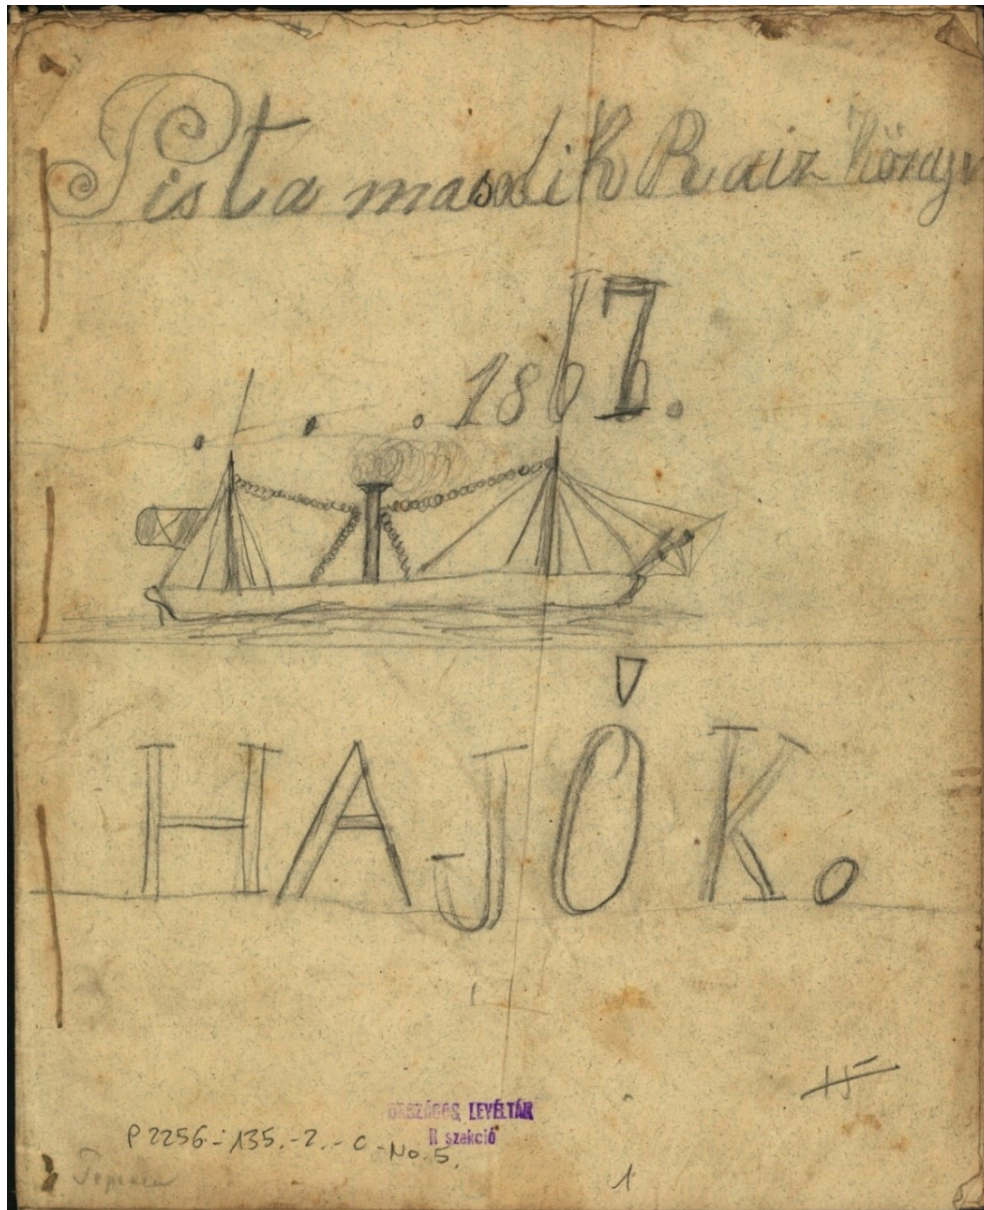 Pista masodik Raiz könyv
1867.
HAJÓK.
ORSZÁGOS LEVÉLTÁR
R szekció
P 2256.-135.-2.-C-No.5.
1